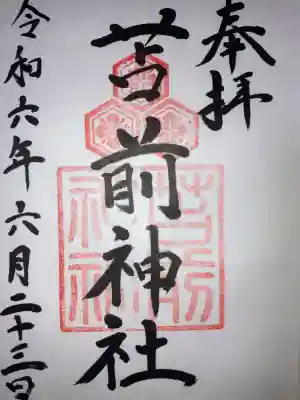 奉拝
苫前神社
令和六年六月二十三日